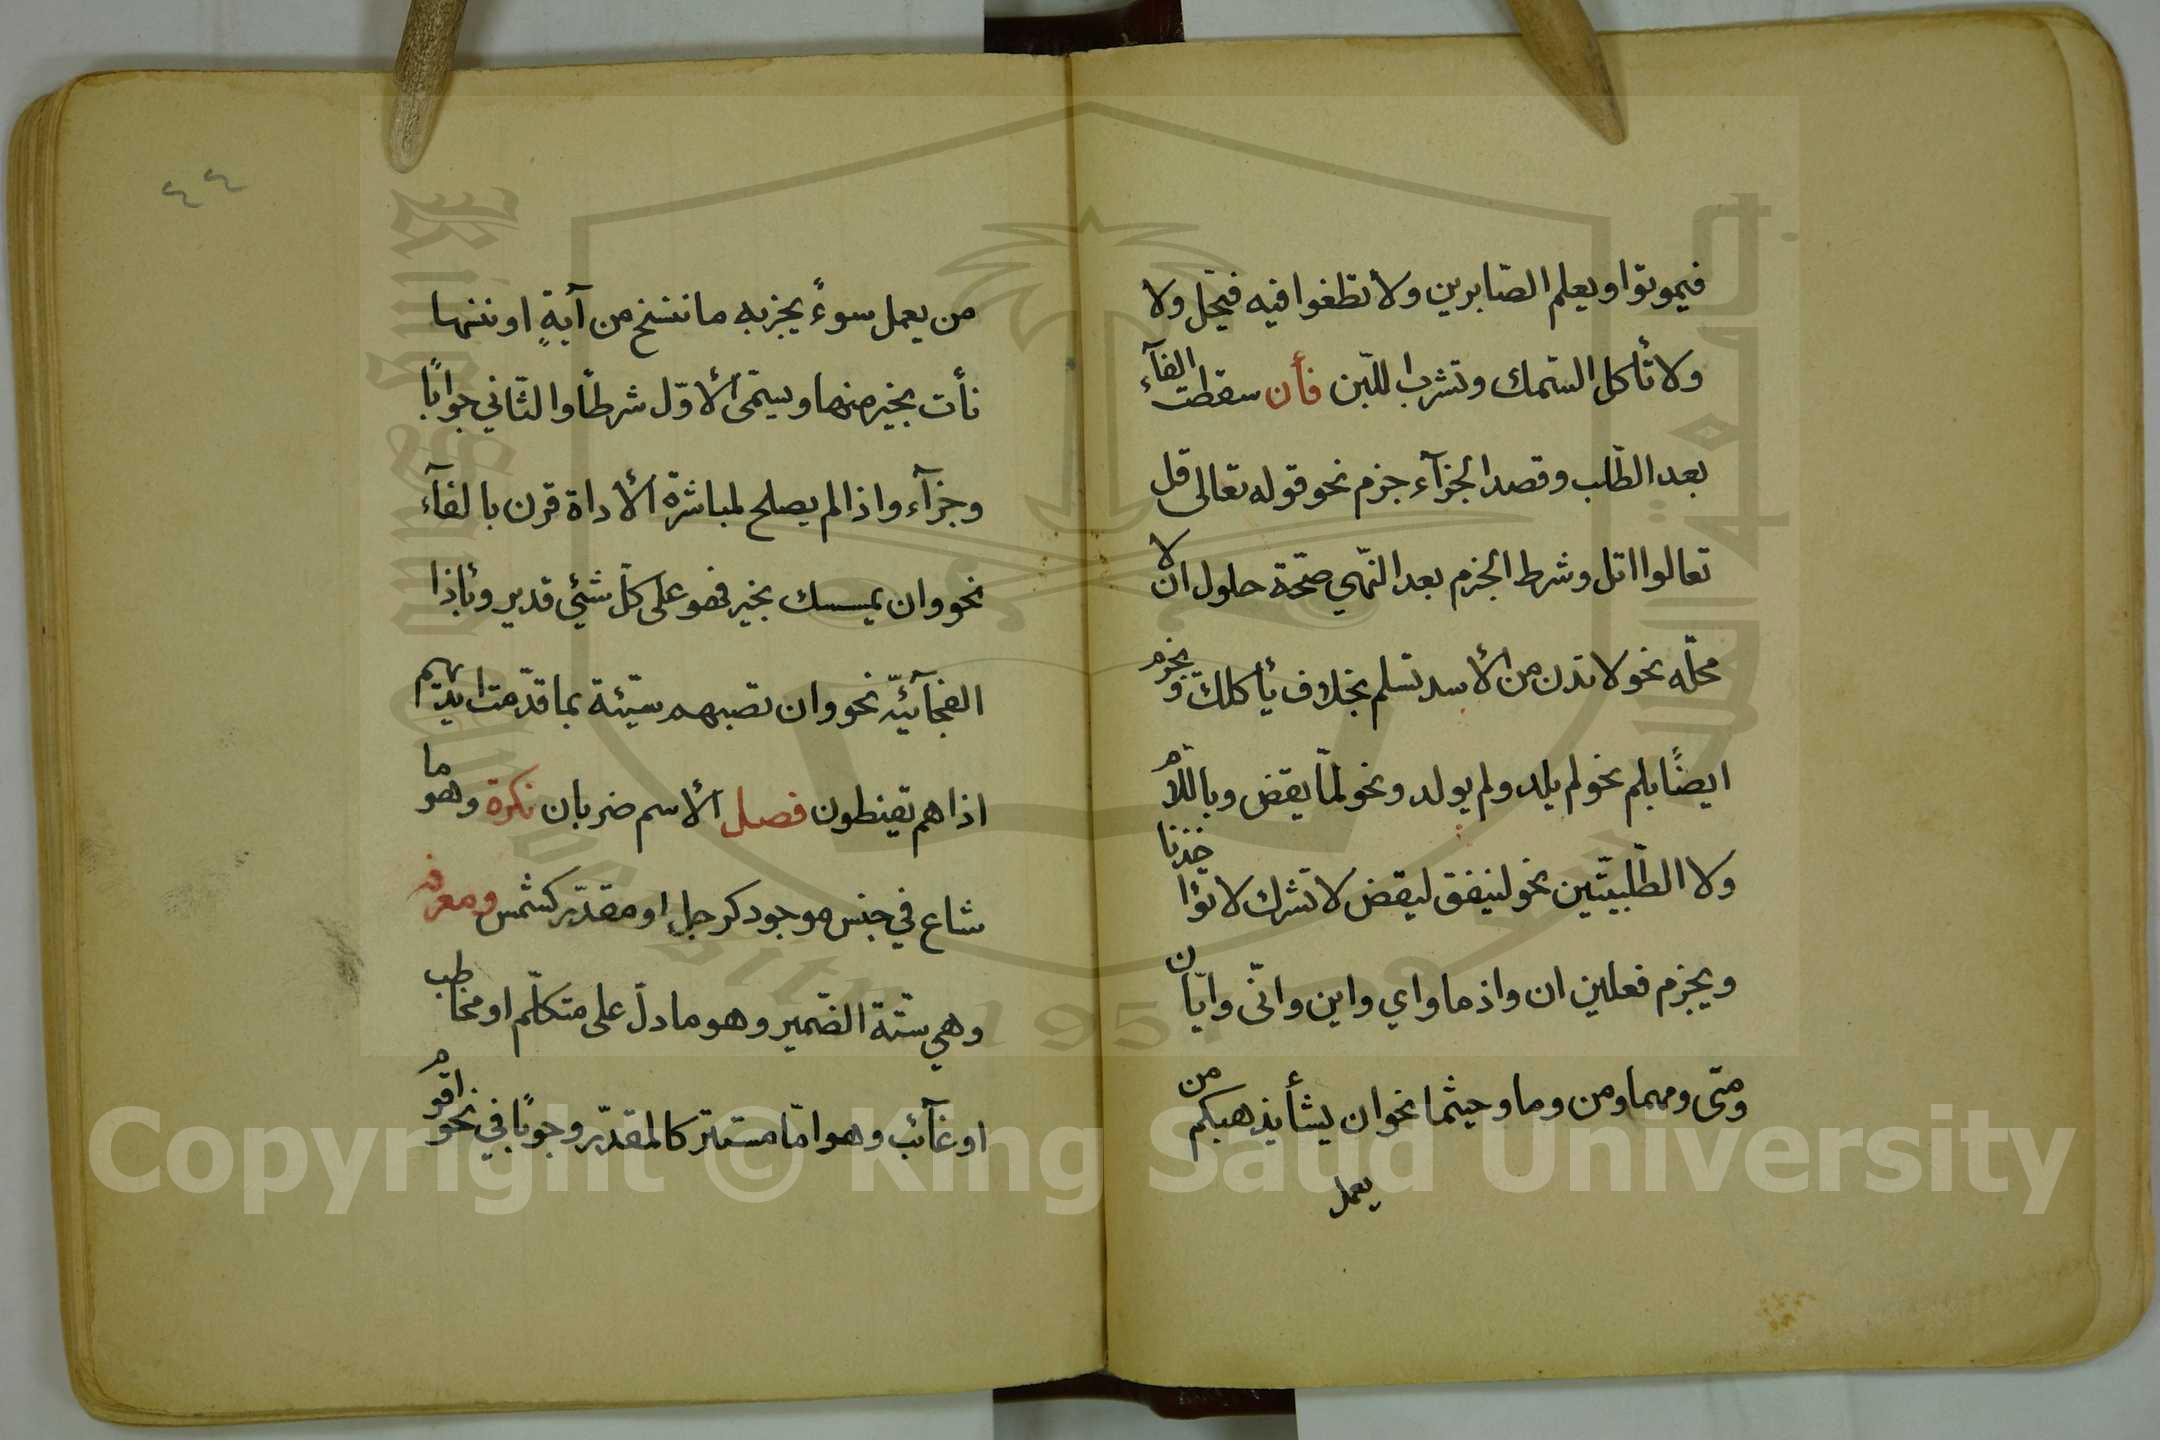 فيموتوا ويعلم الصّابرين ولا تطغوا فيه فيحلّ ولا
ولا تأكل السّمك وتشرب اللّبن فأن سقطت الفآء
بعد الطّلب وقصد الجزآء جزم نحو قوله تعالى قل
تعالوا اتل وشرط الجزم بعد النّهي صحّة حلول ان لا
محلّه نحو لا تدن من الأسد تسلم بخلاف يأكلك ويجزم
ايضًا بلم نحو لم يلد ولم يولد ونحو لمّا يقض وباللّام
ولا الطّلبيّتين نحو لينفق ليقض لا تشرك لا تؤاخذنا
ويجزم فعلين ان واذما واي واين وانّى وايّان
ومتى ومهما ومن وما وحيثما نحو ان يشأ يذهبكم من
يعمل
٤٤
من يعمل سوءً يجز به ما ننسخ من آيةٍ او ننسها
نأت بخير منها ويسمّى الأوّل شرطًا والثّاني جوابًا
وجزآء واذا لم يصلح لمباشرة الأداة قرن بالفآء
نحو وان يمسسك بخير فهو على كلّ شئي قدير وبأذا
الفجآئيّه نحو وان تصبهم سيّئة بما قدّمت ايديهم
اذا هم يقنطون فصل الأسم ضربان نكرة وهو ما
شاع في جنس موجود كرجل او مقدّر كشمس ومعرفه
وهي ستّة الضّمير وهو ما دلّ على متكلّم او مخاطب
او غآئب وهو امّا مستتر كالمقدّر وجوبًا في نحو اقوم
Copyright © King Saud University
King Saud University 1957